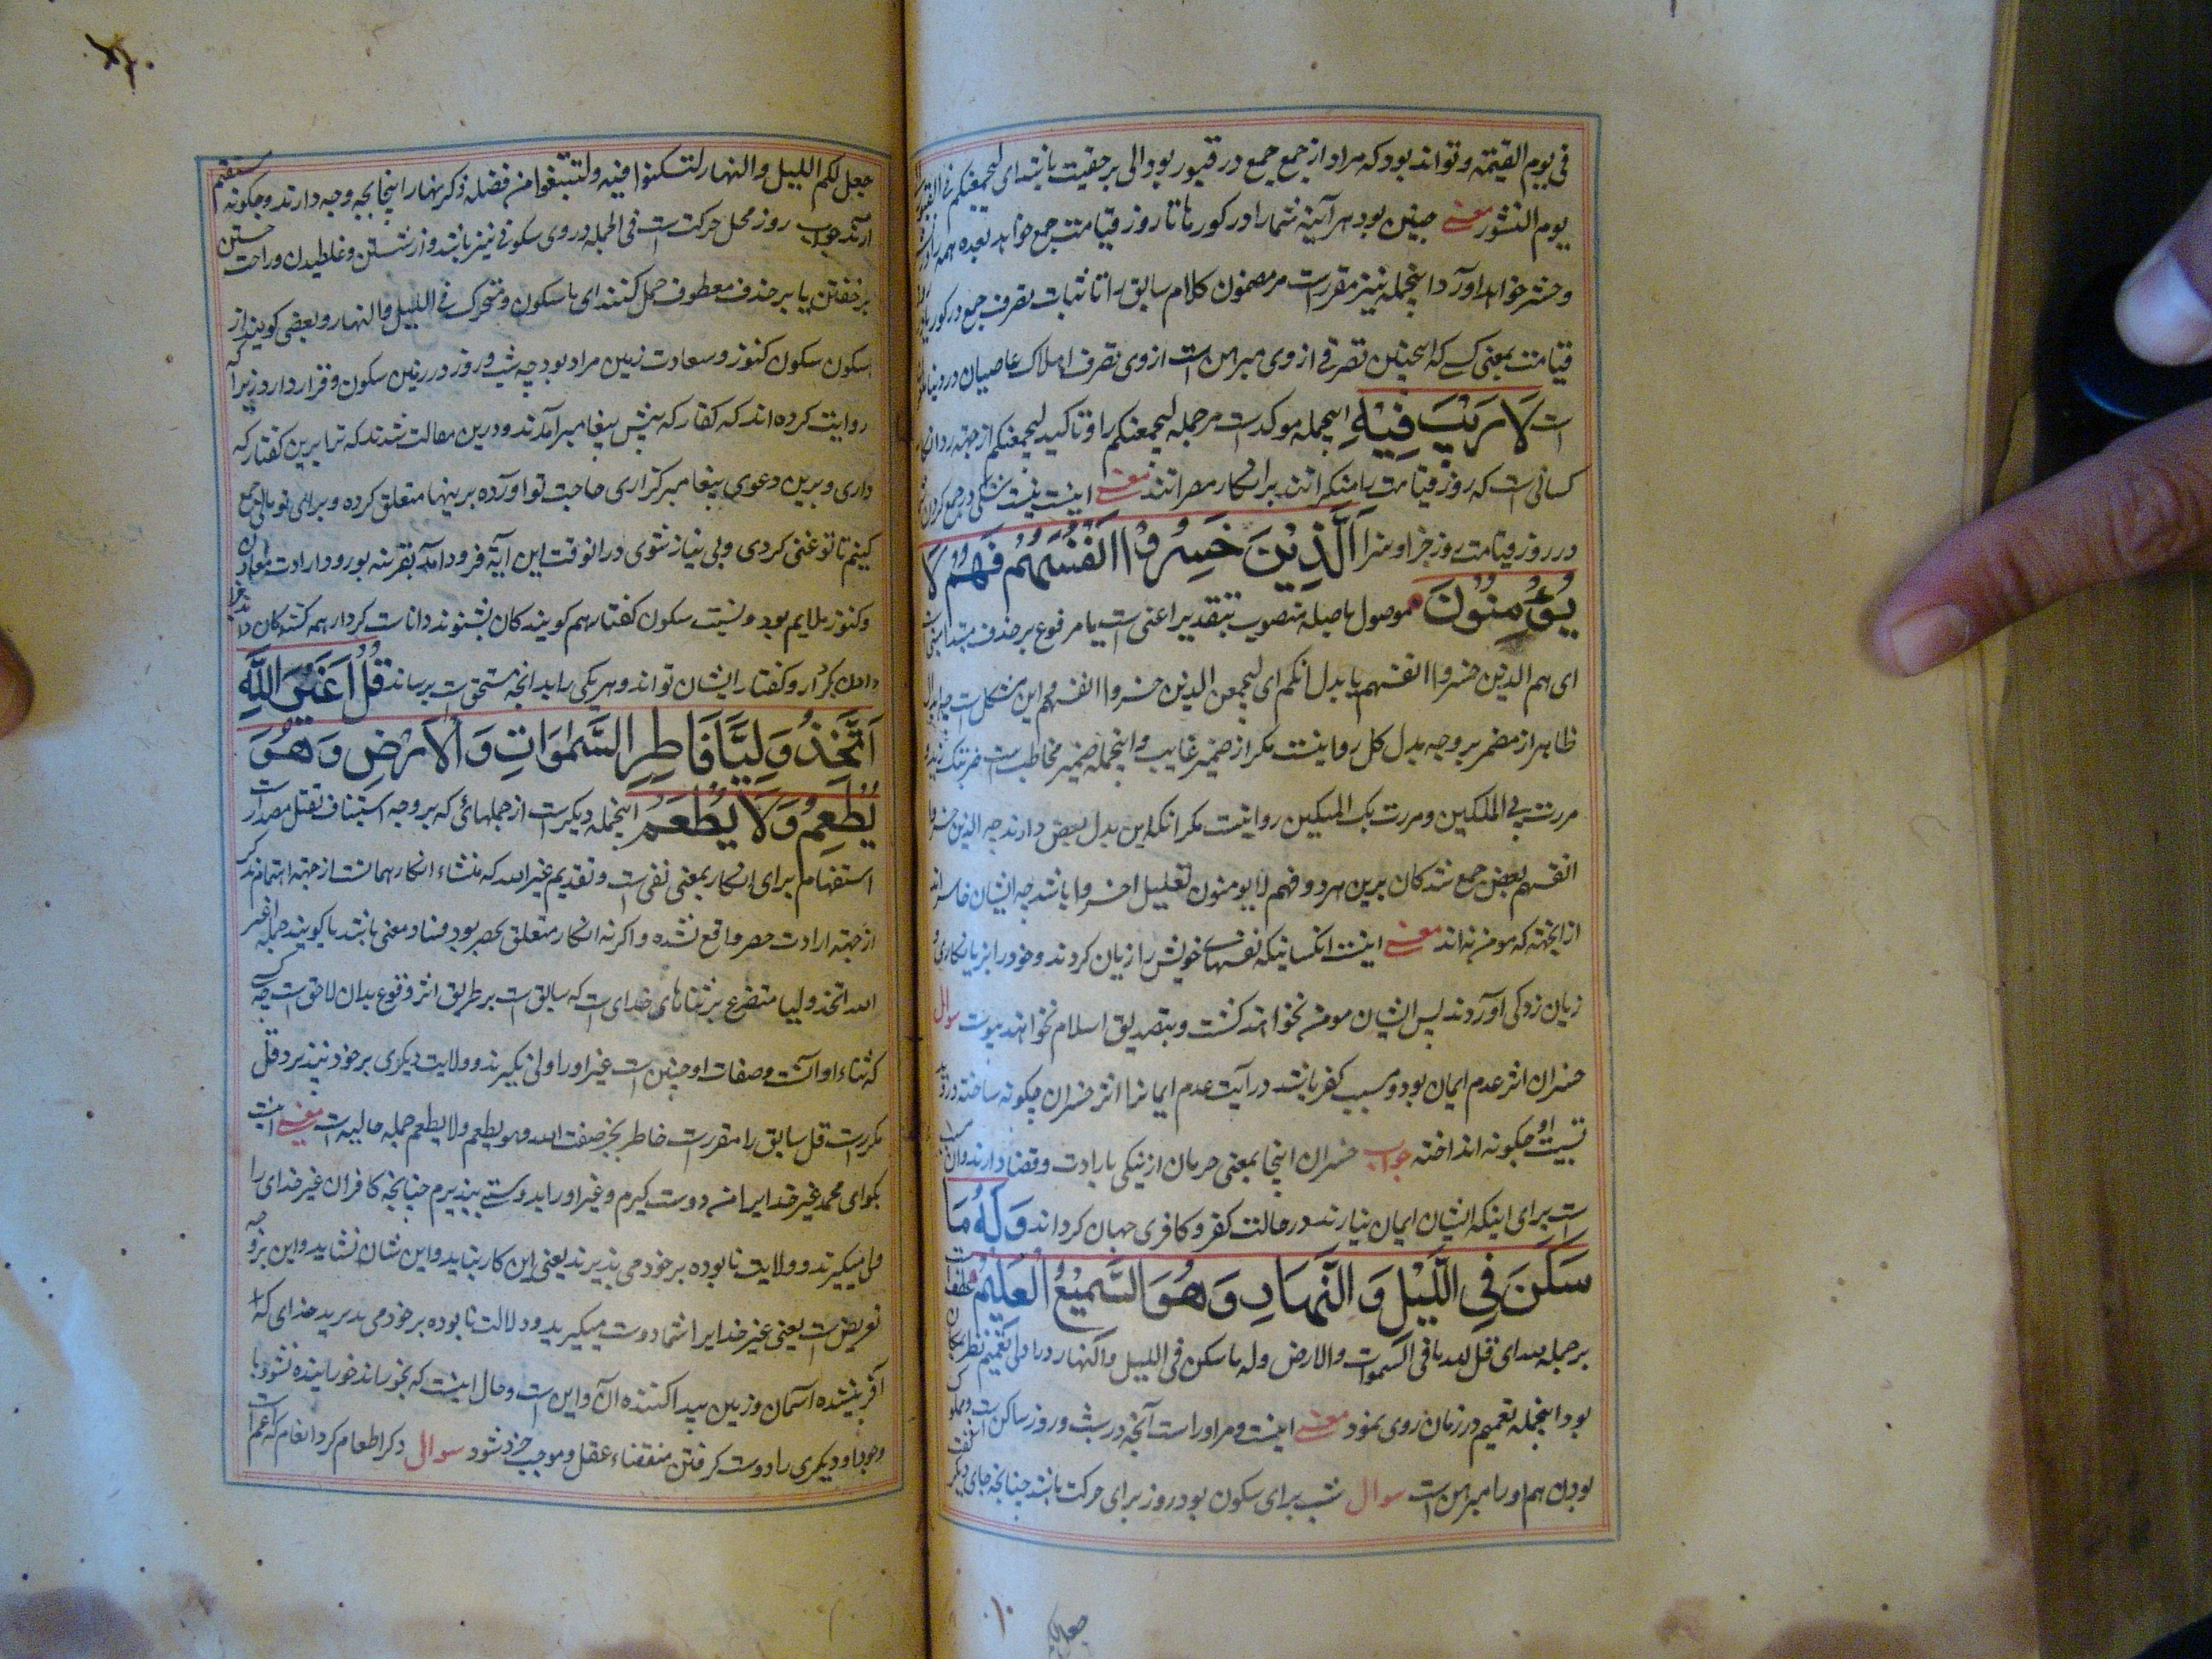 فی یوم القیمة و تواند بود که مراد از جمع جمع در قبور بود الی بر حقیقت باشد ای لیجمعنکم فی القبور
یوم النشور معنے چنین بود هر آینه شما را در کورها تا روز قیامت جمع خواهد بعده همه را
و حشر خواهد آورد اینجمله نیز مقررست مر مضمون کلام سابق را تا ثبات تصرف جمع در کور
قیامت بمعنی کسے که اینچنین تصرفے از وی مبرهن است از وی تصرف املاک عاصیان در دنیا
است لَا رَیْبَ فِیْهِ اینجمله موکدست مر جمله لیجمعنکم را و تاکید لیجمعنکم از جهته رد انکار
کسانی است که روز قیامت را منکر اند بر انکار مصر اند معنے اینست نیست شکی در جمع کردن
در روز قیامت روز جزا و سزا اَلَّذِیْنَ خَسِرُوْا اَنْفُسَهُمْ فَهُمْ لَا
یُؤْمِنُوْنَ موصول با صله منصوب بتقدیر اعنی است یا مرفوع بر حذف مبتدا
ای هم الذین خسروا انفسهم یا بدل انکم ای لیجمعن الذین خسروا انفسهم و این مشکل است چه ابدال
ظاهر از مضمر بر وجه بدل کل روا نیست مگر از ضمیر غایب و اینجمله ضمیر مخاطب است
مررت بی المسکین و مررت بک المسکین روا نیست مگر آنکه این بدل بعض دارند چه الذین خسروا
انفسهم بعض جمع شدکان برین مرد و فهم لا یومنون تعلیل خسروا باشد چه ایشان خاسر اند
از انجهته که مومن نه اند معنے اینست انکسانیکه نفسهای خویش را زیان کردند و خود را بزیانکاری و
زیان زدکی آوردند پس ایشان مومن نخواهند کشت و بتصدیق اسلام نخواهند پیوست سوال
خسران اثر عدم ایمان بود و سبب کفر باشد در آیت عدم ایمانرا اثر خسران چکونه ساخته
تسبیب او چکونه انداخته جواب خسران اینجا بمعنی حرمان از نیکی بارادت و قضا دارند و آن سبب
است برای اینکه ایشان ایمان نیارند در حالت کفر و کافری جهان کرد اند وَ لَهٗ مَا
سَکَنَ فِی الَّیْلِ وَ النَّهَارِ وَ هُوَ السَّمِیْعُ الْعَلِیْمُ
بر جمله لله ای قل لله ما فی السموات والارض و له ما سکن فی اللیل والنهار در اول تعمیم نظر بمکان
بود اینجمله تعمیم در زمان روی نمود معنے اینست و مر او راست آنچه در شب و روز ساکن است
بودن هم او را مبرهن است سوال شب برای سکون بود روز برای حرکت باشد چنانچه جای دیکر
جعل
جعل لکم اللیل والنهار لتسکنوا فیه و لتبتغوا من فضله ذکر نهار اینجا بچه وجه دارند و چکونه مستقیم
آرند جواب روز محل حرکت است فی الجمله در وی سکونے نیز باشد و از نشستن و غلطیدن و راحت جستن
بر خفتن یا بر حذف معطوف حمل کنند ای ما سکن و تحرک فی اللیل والنهار و بعضی کویند از
سکون سکون کنوز و سعادت زمین مراد بود چه شب و روز در زمین سکون و قرار دارد زیرا که
روایت کرده اند که کفار که پیش پیغامبر آمدند و درین مقالت شدند که ترا برین کفتار که
داری و برین دعوی پیغامبر کزاری حاجت تو آورده بر ینها متعلق کرده و برای تو مالی جمع
کنیم تا تو غنی کردی و بی نیاز شوی در آنوقت این آیه فرود آمد بقرینه بورود ارادت معادن
و کنوز ملایم بود و نسبت سکون کفتار هم کویندکان بشنوند دانا است کردار همه کنندکان داند
دادن کردار و کفتار ایشان تواند و هر یکی را بدانچه مستحق است برساند قُلْ اَغَیْرَ اللّٰهِ
اَتَّخِذُ وَلِیًّا فَاطِرِ السَّمٰوَاتِ وَ الْاَرْضِ وَ هُوَ
یُطْعِمُ وَ لَا یُطْعَمُ اینجمله دیکرست از جملهائی که بر وجه استیناف بقل مصدر است
استفهام برای انکار بمعنی نفی است و تقدیم غیر الله که منشاء انکار همانست از جهته اهتمام ذکر
از جهته ارادت حصر واقع نشده و اکر نه انکار متعلق بحصر بود فساد معنی باشد یا کویند جمله اغیر
الله اتخذ ولیا متفرع بر ثناهای خدای است که سابق است بر طریق اثر وقوع بدان لاحق است چه کسی
که ثناء او آنست و صفات او چنین است غیر او را ولی نکیرند و ولایت دیکری بر خود نپذیرد و قل
مکررست قل سابق را مقررست فاطر بجر صفت الله و هو یطعم و لا یطعم جمله حالیه است معنے اینست
بکو ای محمد غیر خدایرا من دوست کیرم و غیر او را بدوستے بپذیرم چنانچه کافران غیر خدای را
ولی میکیرند و ولایت نابوده بر خود می پذیرند یعنی این کار نباید و این شان نشاید و این بر وجه
تعریض است یعنی غیر خدایرا شما دوست میکیرید و دلالت نابوده بر خود می پذیرید خدای که
آفریننده آسمان و زمین پیدا کننده آن و این است و حال اینست که بخوراند خورانیده نشود با
وجود او دیکری را دوست کرفتن مقتضاء عقل و موجب خرد نشود سوال ذکر اطعام کرد انعام که اعم است